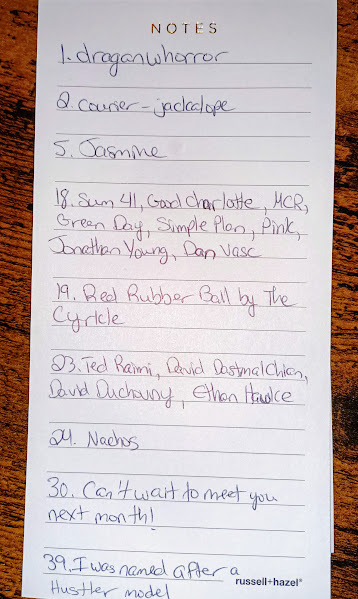 NOTES
1. draganwhorror
2. courier-jackalope
5. Jasmine
18. Sum 41, Good Charlotte, MCR,
Green Day, Simple Plan, Pink,
Jonathan Young, Dan Vasc
19. Red Rubber Ball by The
Cyrkle
23. Ted Raimi, David Dastmalchian,
David Duchovny, Ethan Hawke
24. Nachos
30. Can't wait to meet you
next month!
39. I was named after a
russell+hazel®
Hustler model